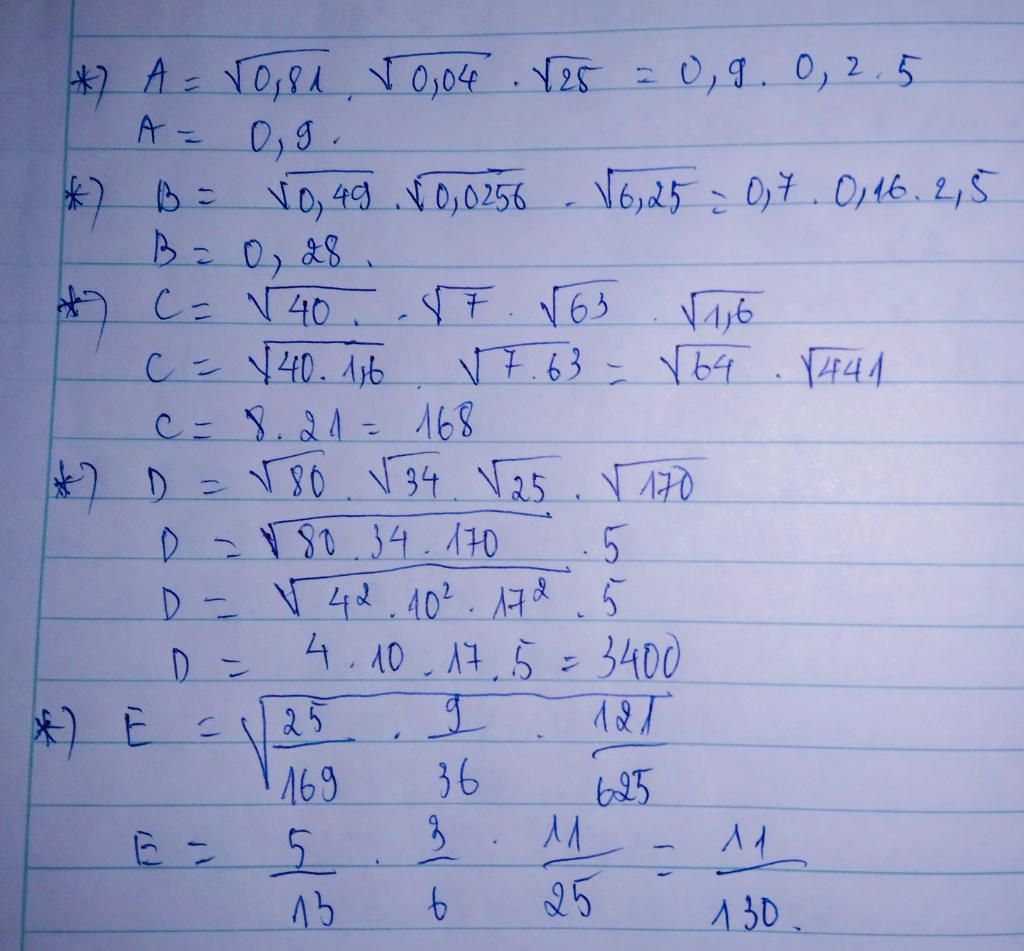 *) A = √0,81 . √0,04 . √25 = 0,9 . 0,2 . 5
A = 0,9.
*) B = √0,49 . √0,0256 . √6,25 = 0,7 . 0,16 . 2,5
B = 0,28.
*) C = √40 . √7 . √63 . √1,6
C = √40.1,6 . √7.63 = √64 . √441
C = 8.21 = 168
*) D = √80 . √34 . √25 . √170
D = √80.34.170 . 5
D = √4².10².17² . 5
D = 4.10.17.5 = 3400
*) E = √25/169 . 9/36 . 121/625
E = 5/13 . 3/6 . 11/25 = 11/130.